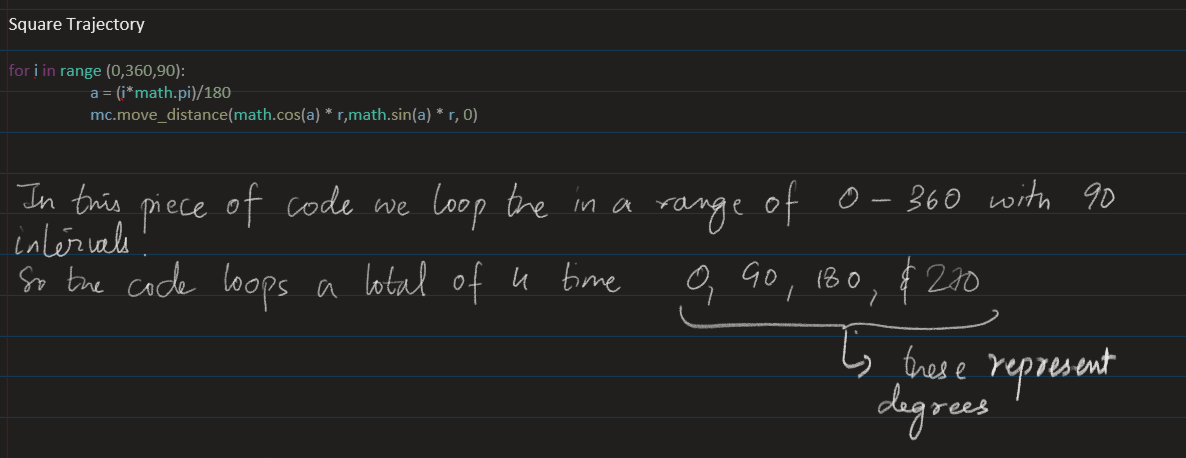 Square Trajectory
for i in range (0,360,90):
a = (i*math.pi)/180
mc.move_distance(math.cos(a) * r,math.sin(a) * r, 0)
In this piece of code we loop the in a range of 0 - 360 with 90
intervals.
So the code loops a total of 4 time 0, 90, 180, & 270
these represent
degrees